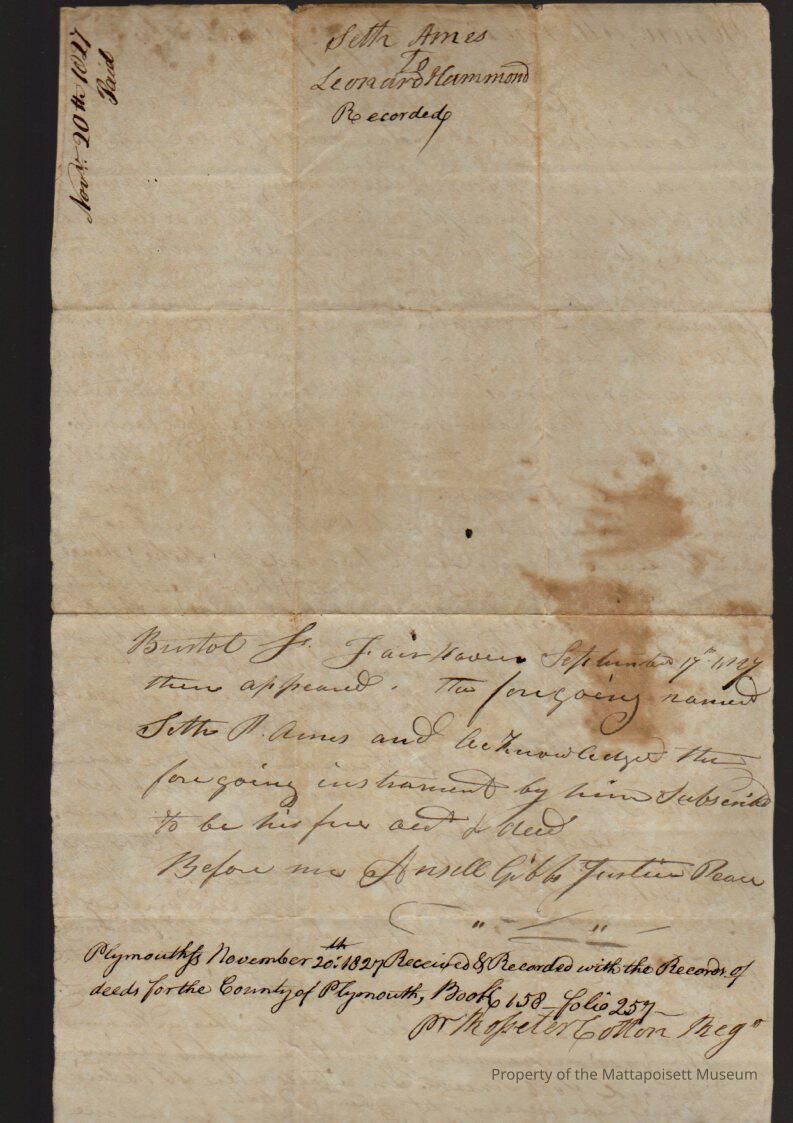 Novr. 20th 1827
Paid
Seth Ames
To
Leonard Hammond
Recorded
Bristol Ss. Fairhaven September 17th 1827
then appeared. The foregoing named
Seth P. Ames and acknowledged the
foregoing instrament by him Subscribd
To be his free act & deed
Before me Ansell Gibbs Justice Peace
Plymouth Ss November 20th. 1827 Received & Recorded with the Records of
deeds for the County of Plymouth, Book 158 folio 257
pr Rosseter Cotton Regr
Property of the Mattapoisett Museum